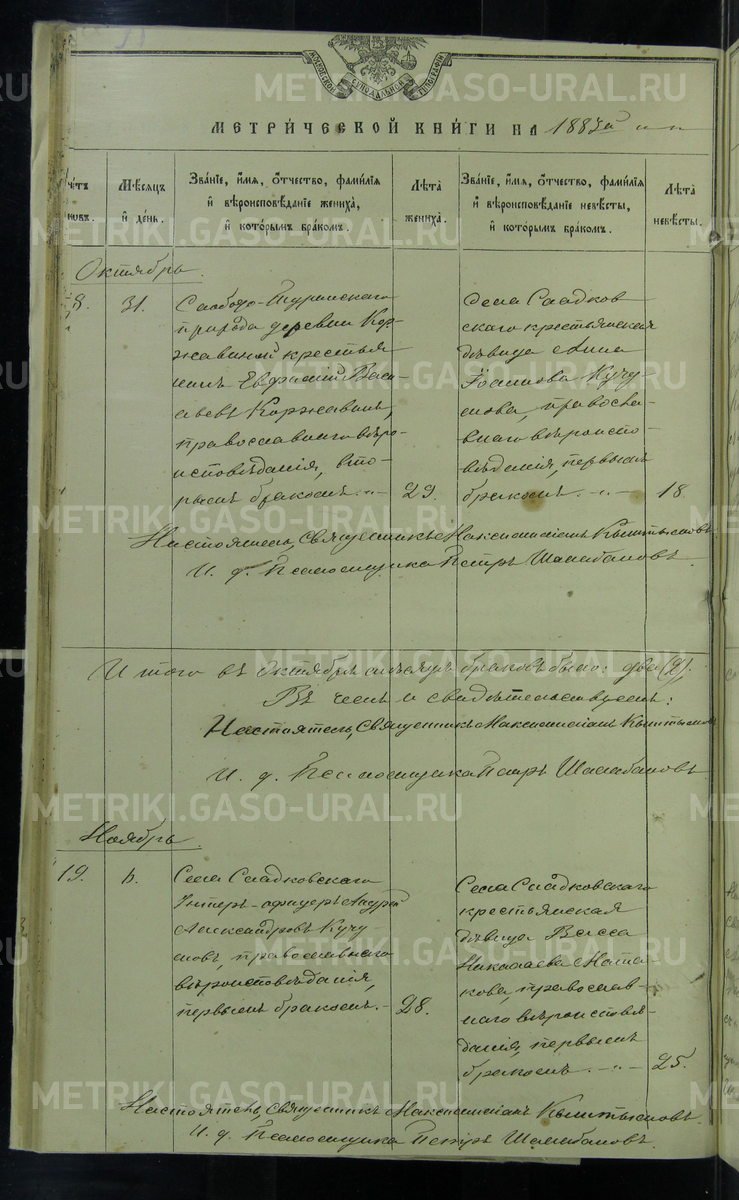 МОСКОВСКОЙ СѴНОДАЛЬНОЙ ТИПОГРАФІИ
МЕТРИ́ЧЕСКОЙ КНИ́ГИ НА 1883й
Мѣ́сяцъ и҆ де́нь.
Зва́нїе, и҆́мѧ, ѻ҆́тчество, фамилїѧ и҆ вѣроисповѣ́данїе жениха̀, и҆ кото́рымъ бра́комъ.
Лѣта̀ жениха̀.
Зва́нїе, и҆́мѧ, ѻ҆́тчество, фамилїѧ и҆ вѣроисповѣ́данїе невѣ́сты, и҆ кото́рымъ бра́комъ.
Лѣта̀ невѣ́сты.
Октябрь.
31.
Слободо-Туринскаго
прихода деревни Кор-
жавиной крестья
нинъ Евфимій Васи-
льевъ Коржавинъ,
православнаго вѣро-
исповѣданія, вто-
рымъ бракомъ. 29.
Села Сладков
скаго крестьянская
дѣвица Анна
Іоаннова Кучу-
мова, правосла-
внаго вѣроиспо-
вѣданія, первымъ
бракомъ. 18.
Настоятель, Священникъ Максимиліанъ
И. д. Псаломщика Петръ Шалабановъ
Итого въ Октябрѣ мѣсяцѣ браковъ было: два (2).
Въ чемъ и свидѣтельствуемъ:
Настоятель, Священникъ Максимиліанъ
И. д. Псаломщика Петръ Шалабановъ
Ноябрь.
19.
Села Сладковскаго
Унтеръ-офицеръ
Александровъ Кучу-
мовъ, православнаго
вѣроисповѣданія,
первымъ бракомъ. 28.
Села Сладковскаго
крестьянская
дѣвица Васса
Николаева
православ-
наго вѣроисповѣ-
данія, первымъ
бракомъ. 25.
Настоятель, Священникъ Максимиліанъ
И. д. Псаломщика Петръ Шалабановъ.
METRIKI.GASO-URAL.RU